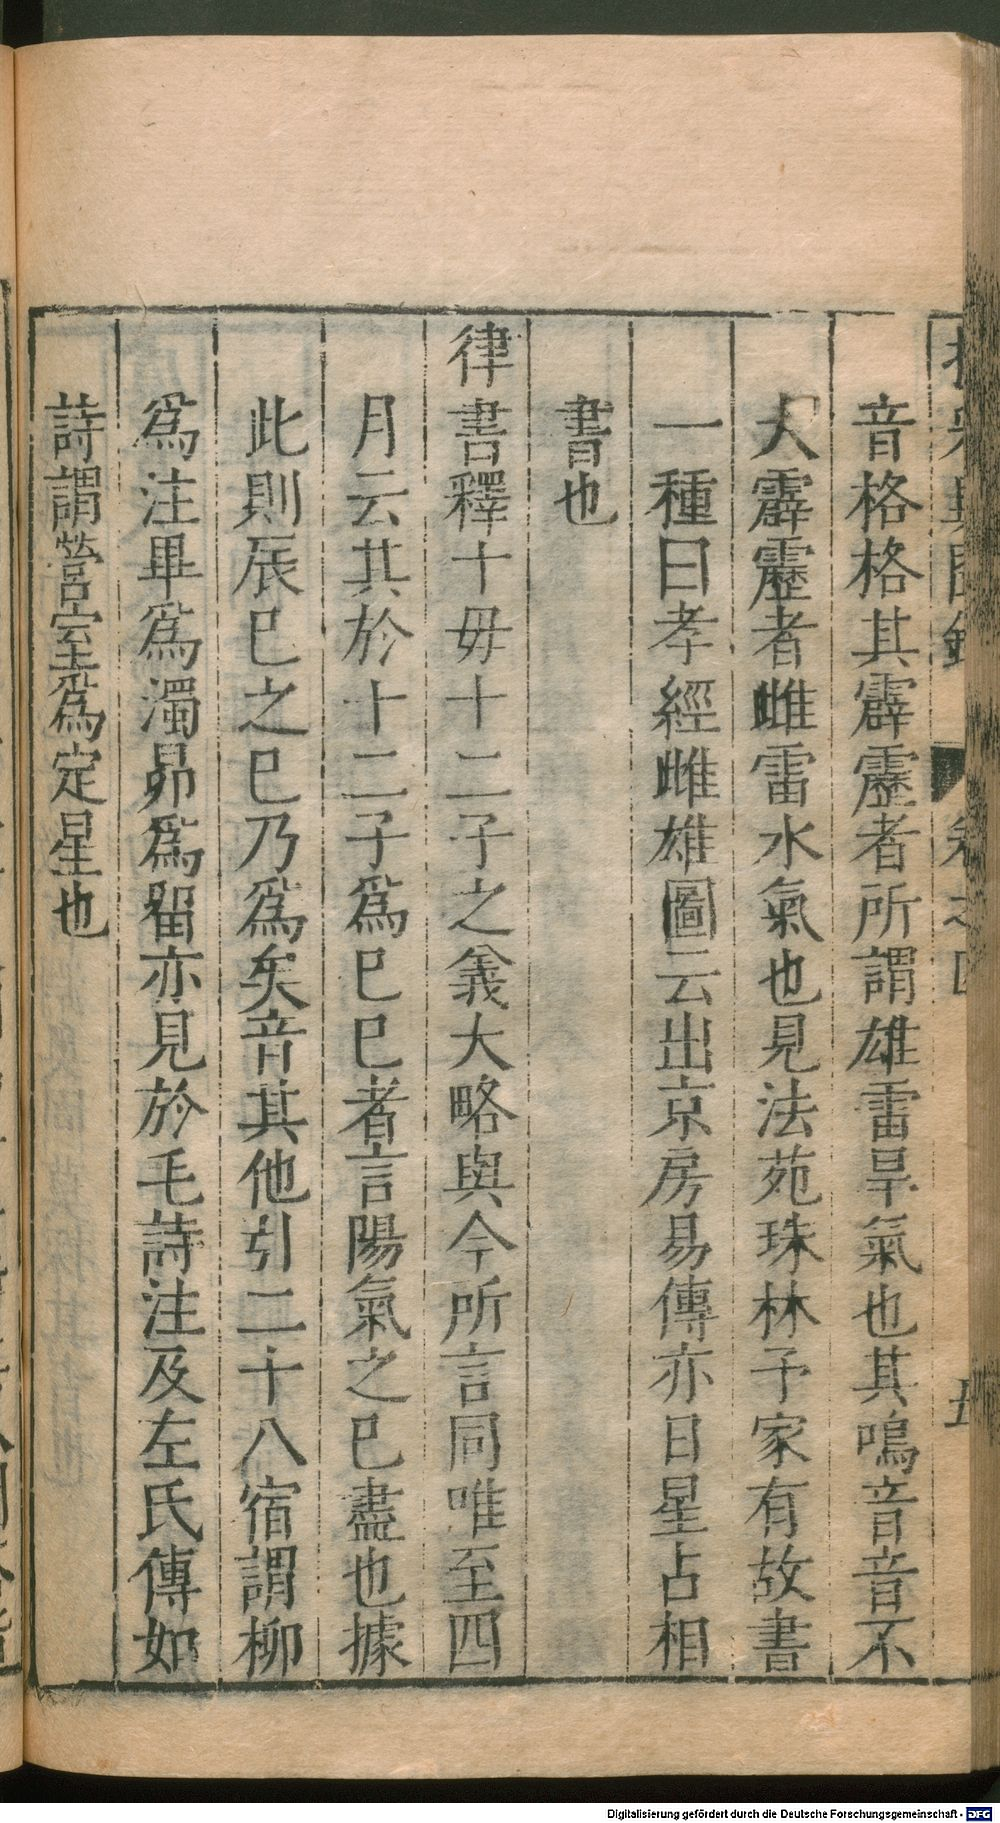 音格格其霹靂者所謂雄雷旱氣也其鳴音音不
大霹靂者雌雷水氣也見法苑珠林予家有故書
一種曰孝經雌雄圖云出京房易傳亦日星占相
書也
律書釋十毋十二子之義大略與今所言同唯至四
月云其於十二子爲巳巳者言陽氣之巳盡也據
此則辰巳之巳乃爲矣音其他引二十八宿謂柳
爲注畢爲濁昴爲留亦見於毛詩注及左氏傳如
詩謂營室爲定星也
Digitalisierung gefördert durch die Deutsche Forschungsgemeinschaft - DFG